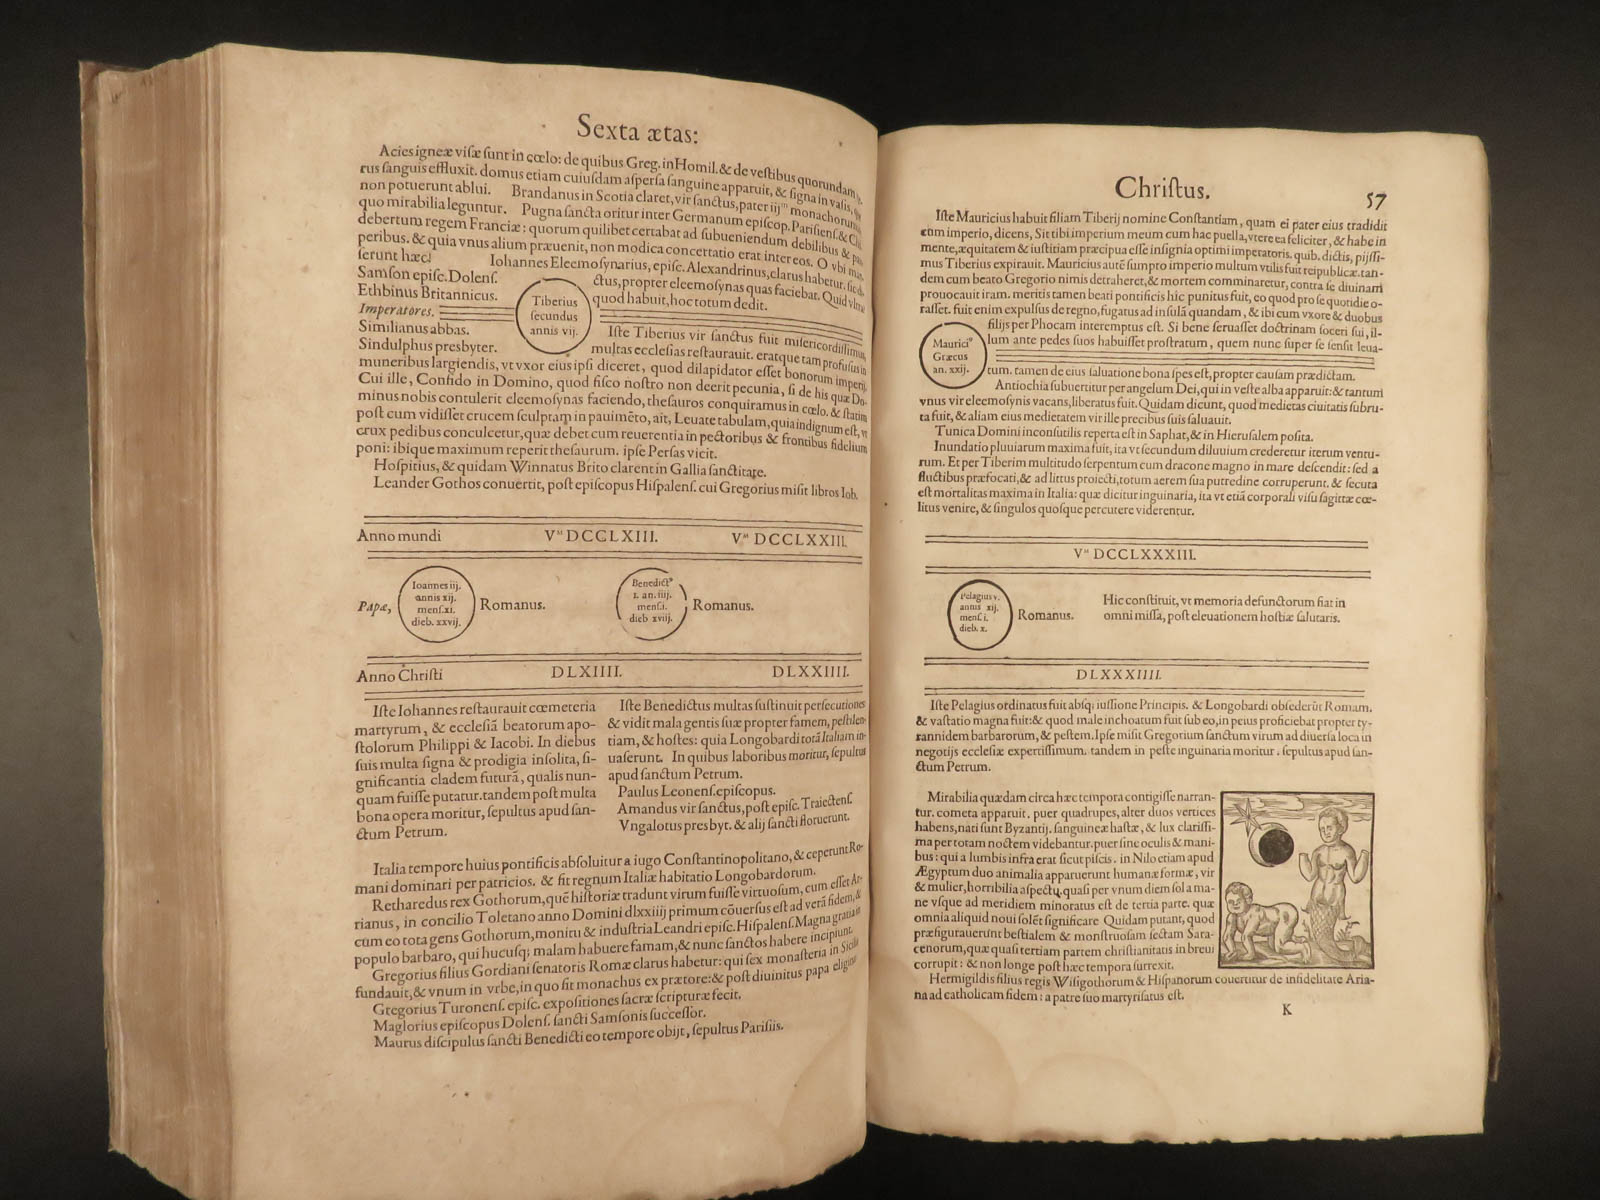 Sexta ætas:
Acies igneæ visæ sunt in cœlo: de quibus Greg. in Homil. & de vestibus quorundam
rus sanguis effluxit. domus etiam cuiusdam aspersa sanguine apparuit, & signa in vasis,
non potuerunt ablui. Brandanus in Scotia claret, vir sanctus, pater iijᵐ monachorum,
quo mirabilia leguntur. Pugna sancta oritur inter Germanum episcop. Parisiens. &
debertum regem Franciæ: quorum quilibet certabat ad subueniendum debilibus &
peribus. & quia vnus alium præuenit, non modica concertatio erat inter eos. O vbi
ferunt hæc! Iohannes Eleemosynarius, episc. Alexandrinus, clarus habetur.
Samson episc. Dolens. ctus, propter eleemosynas quas faciebat. Quid
Ethbinus Britannicus. quod habuit, hoc totum dedit.
Imperatores.
Tiberius
secundus
annis vij.
Similianus abbas. Iste Tiberius vir sanctus fuit misericordissimus,
Sindulphus presbyter. multas ecclesias restaurauit. eratque tam profusus in
muneribus largiendis, vt vxor eius ipsi diceret, quod dilapidator esset bonorum imperij.
Cui ille, Confido in Domino, quod fisco nostro non deerit pecunia, si de his quæ Do-
minus nobis contulerit eleemosynas faciendo, thesauros conquiramus in cœlo. & statim
post cum vidisset crucem sculptam in pauimēto, ait, Leuate tabulam, quia indignum est, vt
crux pedibus conculcetur, quæ debet cum reuerentia in pectoribus & frontibus fidelium
poni: ibique maximum reperit thesaurum. ipse Persas vicit.
Hospitius, & quidam Winnatus Brito clarent in Gallia sanctitate.
Leander Gothos conuertit, post episcopus Hispalens. cui Gregorius misit libros Iob.
Anno mundi Vᴹ DCCLXIII. Vᴹ DCCLXXIII.
Papæ,
Ioannes iij.
annis xij.
mens. xi.
dieb. xxvij.
Romanus.
Benedict⁹
I. an. iiij.
mens. i.
dieb xviij.
Romanus.
Anno Christi DLXIIII. DLXXIIII.
Iste Iohannes restaurauit cœmeteria
martyrum, & ecclesiā beatorum apo-
stolorum Philippi & Iacobi. In diebus
suis multa signa & prodigia insolita, si-
gnificantia cladem futurā, qualis nun-
quam fuisse putatur. tandem post multa
bona opera moritur, sepultus apud san-
ctum Petrum.
Iste Benedictus multas sustinuit persecutiones
& vidit mala gentis suæ propter famem, pestilen-
tiam, & hostes: quia Longobardi totā Italiam in-
uaserunt. In quibus laboribus moritur, sepultus
apud sanctum Petrum.
Paulus Leonens. episcopus.
Amandus vir sanctus, post episc. Traiectens.
Vngalotus presbyt. & alij sancti floruerunt.
Italia tempore huius pontificis absoluitur a iugo Constantinopolitano, & ceperunt Ro-
mani dominari per patricios. & fit regnum Italiæ habitatio Longobardorum.
Retharedus rex Gothorum, quē historiæ tradunt virum fuisse virtuosum, cum esset Ar-
rianus, in concilio Toletano anno Domini dlxxiiij primum cōuersus est ad verā fidem, &
cum eo tota gens Gothorum, monitu & industria Leandri episc. Hispalens. Magna gratia in
populo barbaro, qui hucusq; malam habuere famam, & nunc sanctos habere incipiunt.
Gregorius filius Gordiani senatoris Romæ clarus habetur: qui sex monasteria in Sicilia
fundauit, & vnum in vrbe, in quo fit monachus ex prætore: & post diuinitus papa eligitur
Gregorius Turonens. episc. expositiones sacræ scripturæ fecit.
Maglorius episcopus Dolens. sancti Samsonis successor.
Maurus discipulus sancti Benedicti eo tempore obijt, sepultus Parisiis.
Christus. 57
Iste Mauricius habuit filiam Tiberij nomine Constantiam, quam ei pater eius tradidit
cum imperio, dicens, Sit tibi imperium meum cum hac puella, vtere ea feliciter, & habe in
mente, æquitatem & iustitiam præcipua esse insignia optimi imperatoris. quib. dictis, pijssi-
mus Tiberius expirauit. Mauricius autē sumpto imperio multum vtilis fuit reipublicæ. tan-
dem cum beato Gregorio nimis detraheret, & mortem comminaretur, contra se diuinam
prouocauit iram. meritis tamen beati pontificis hic punitus fuit, eo quod pro se quotidie o-
rasset. fuit enim expulsus de regno, fugatus ad insulā quandam, & ibi cum vxore & duobus
filijs per Phocam interemptus est. Si bene seruasset doctrinam soceri sui, il-
lum ante pedes suos habuisset prostratum, quem nunc super se sensit leua-
Maurici⁹
Græcus
an. xxij.
tum. tamen de eius saluatione bona spes est, propter causam prædictam.
Antiochia subuertitur per angelum Dei, qui in veste alba apparuit: & tantum
vnus vir eleemosynis vacans, liberatus fuit. Quidam dicunt, quod medietas ciuitatis subru-
ta fuit, & aliam eius medietatem vir ille precibus suis saluauit.
Tunica Domini inconsutilis reperta est in Saphat, & in Hierusalem posita.
Inundatio pluuiarum maxima fuit, ita vt secundum diluuium crederetur iterum ventu-
rum. Et per Tiberim multitudo serpentum cum dracone magno in mare descendit: sed a
fluctibus præfocati, & ad littus proiecti, totum aerem sua putredine corruperunt. & secuta
est mortalitas maxima in Italia: quæ dicitur inguinaria, ita vt etiā corporali visu sagittæ cœ-
litus venire, & singulos quosque percutere viderentur.
Vᴹ DCCLXXXIII.
Pelagius v.
annis xij.
mens. i.
dieb. x.
Romanus.
Hic constituit, vt memoria defunctorum fiat in
omni missa, post eleuationem hostiæ salutaris.
DLXXXIIII.
Iste Pelagius ordinatus fuit absq; iussione Principis. & Longobardi obsederūt Romam.
& vastatio magna fuit: & quod male inchoatum fuit sub eo, in peius proficiebat propter ty-
rannidem barbarorum, & pestem. Ipse misit Gregorium sanctum virum ad diuersa loca in
negotijs ecclesiæ expertissimum. tandem in peste inguinaria moritur. sepultus apud san-
ctum Petrum.
Mirabilia quædam circa hæc tempora contigisse narran-
tur. cometa apparuit. puer quadrupes, alter duos vertices
habens, nati sunt Byzantij. sanguineæ hastæ, & lux clarissi-
ma per totam noctem videbantur. puer sine oculis & mani-
bus: qui a lumbis infra erat sicut piscis. in Nilo etiam apud
Ægyptum duo animalia apparuerunt humanæ formæ, vir
& mulier, horribilia aspectu, quasi per vnum diem sol a ma-
ne vsque ad meridiem minoratus est de tertia parte. quæ
omnia aliquid noui solēt significare Quidam putant, quod
præsigurauerint bestialem & monstruosam sectam Sara-
cenorum, quæ quasi tertiam partem christianitatis in breui
corrupit: & non longe post hæc tempora surrexit.
Hermigildis filius regis Wisigothorum & Hispanorum couertitur de infidelitate Aria-
na ad catholicam fidem: a patre suo martyrisatus est.
K